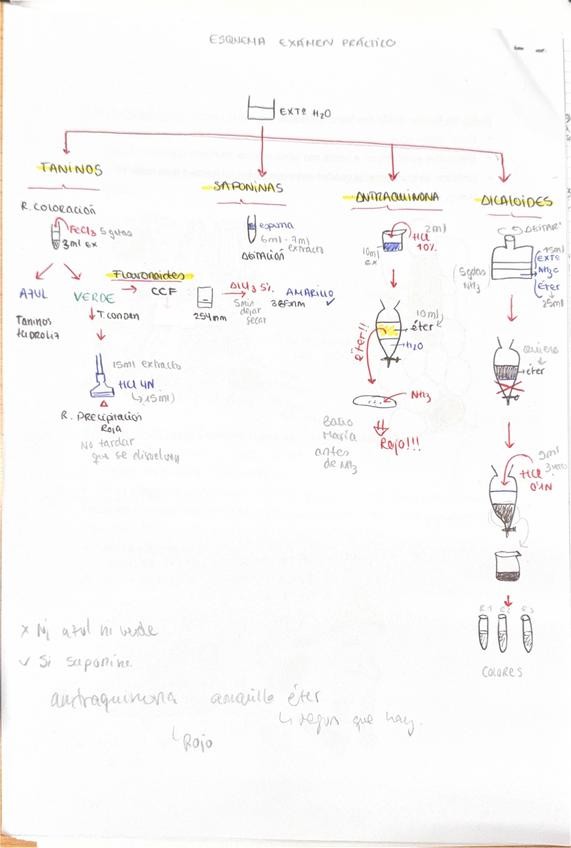 ESQUEMA EXÁMEN PRÁCTICO
EXTº H2O
TANINOS
R. COLORACIÓN
FeCl3 5 gotas
3ml ex
AZUL
Taninos
HIDROLIZ
VERDE
T. conden
15ml extracto
HCl 4N
↳ 15ml)
Δ
R. PRECIPITACIÓN
ROJA
No tardar
que se disuelven
Flavonoides
CCF
254nm
AlCl3 5%
5min
dejar
secar
AMARILLO
365nm ✓
SAPONINAS
espuma
6ml - 7ml
extracto
AGITACIÓN
ANTRAQUINONA
2ml
HCl
10%
10ml
ex
10ml
éter
H2O
éter!!
NH3
Baño
María
antes
de NH3
Rojo!!!
ALCALOIDES
AGITAR
15ml
EXTº
5gotas
NH3
éter
25ml
quiero
éter
5ml
3 veces
HCl
0'1N
R1 R2 R3
COLORES
x Ni azul ni verde
✓ Si saponina
antraquinona amarillo éter
↳ según que hay.
↳ Rojo